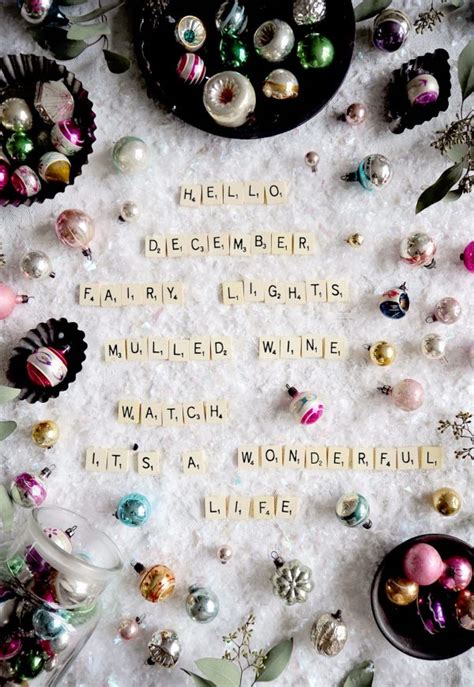 HELLO,
DECEMBER
FAIRY LIGHTS
MULLED WINE
WATCH
IT'S A WONDERFUL
LIFE